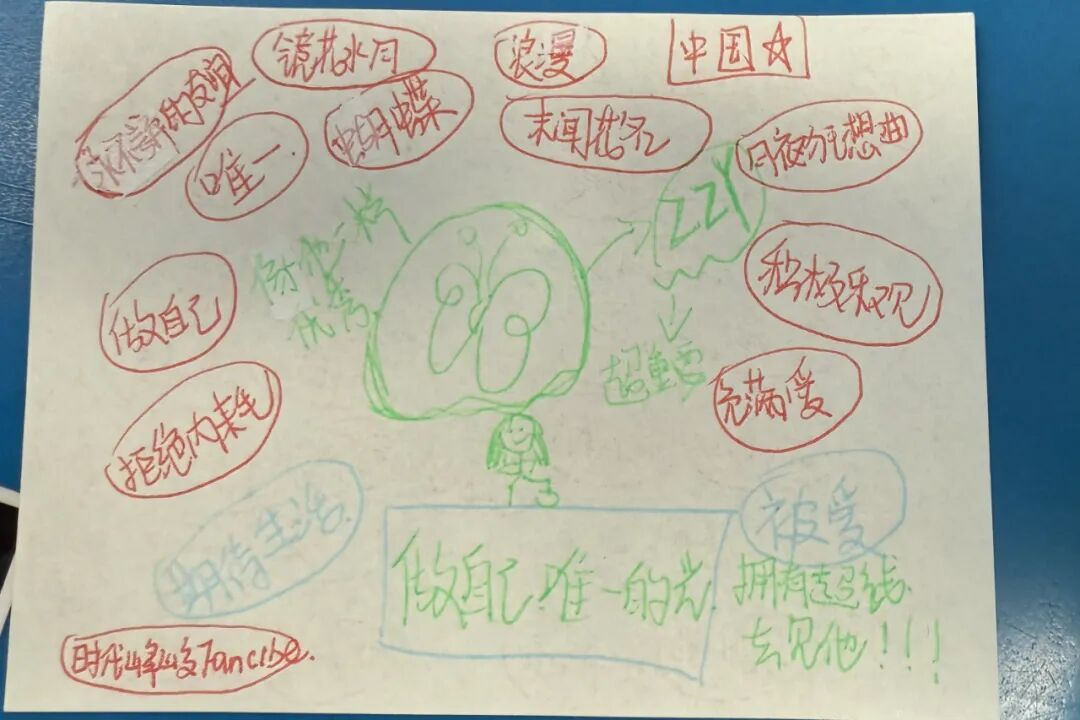 镜花水月
浪漫
中国☆
的友谊
唯一
蝴蝶
未闻花名
月夜幻想曲
ZZY
像他一样
优秀
积极乐观
做自己
超重要
充满爱
拒绝内耗
期待生活
被爱
做自己唯一的光
拥有超钱
去见他!!!
时代峰峻